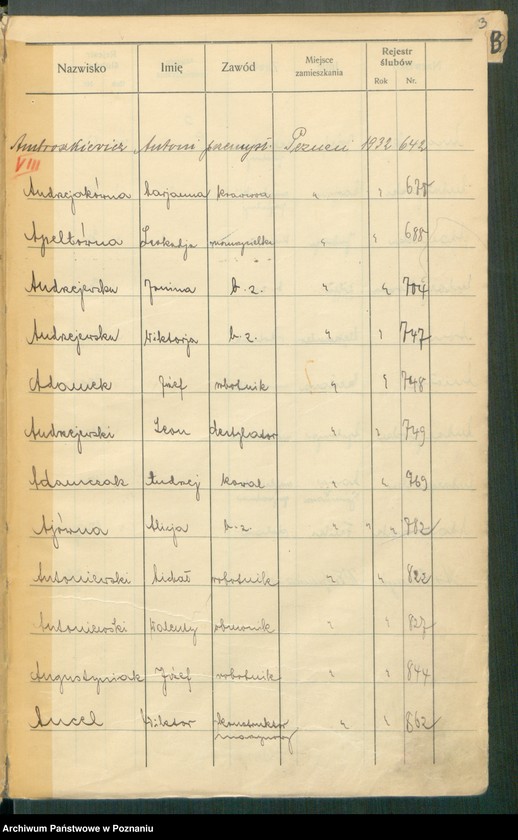 3
B
Nazwisko Imię Zawód Miejsce zamieszkania Rejestr ślubów
Rok Nr.
Ambroszkiewicz Antoni przemysł. Poznań 1932 642
VIII
Andrzejakówna Marjanna krawcowa " " 678
Apeltówna Leokadja nauczycielka " " 688
Andrzejewska Janina b. z. " " 704
Andrzejewska Wiktorja b. z. " " 747
Adamek Józef robotnik " " 748
Andrzejewski Leon destylator " " 749
Adamczak Andrzej kowal " " 769
Ajówna Alicja b. z. " " " 782
Antoniewski Michał robotnik " " 822
Antoniewski Walenty " " 827
Augustyniak Józef robotnik " " 844
Ancel Wiktor konstruktor maszynowy " " 862
Archiwum Państwowe w Poznaniu